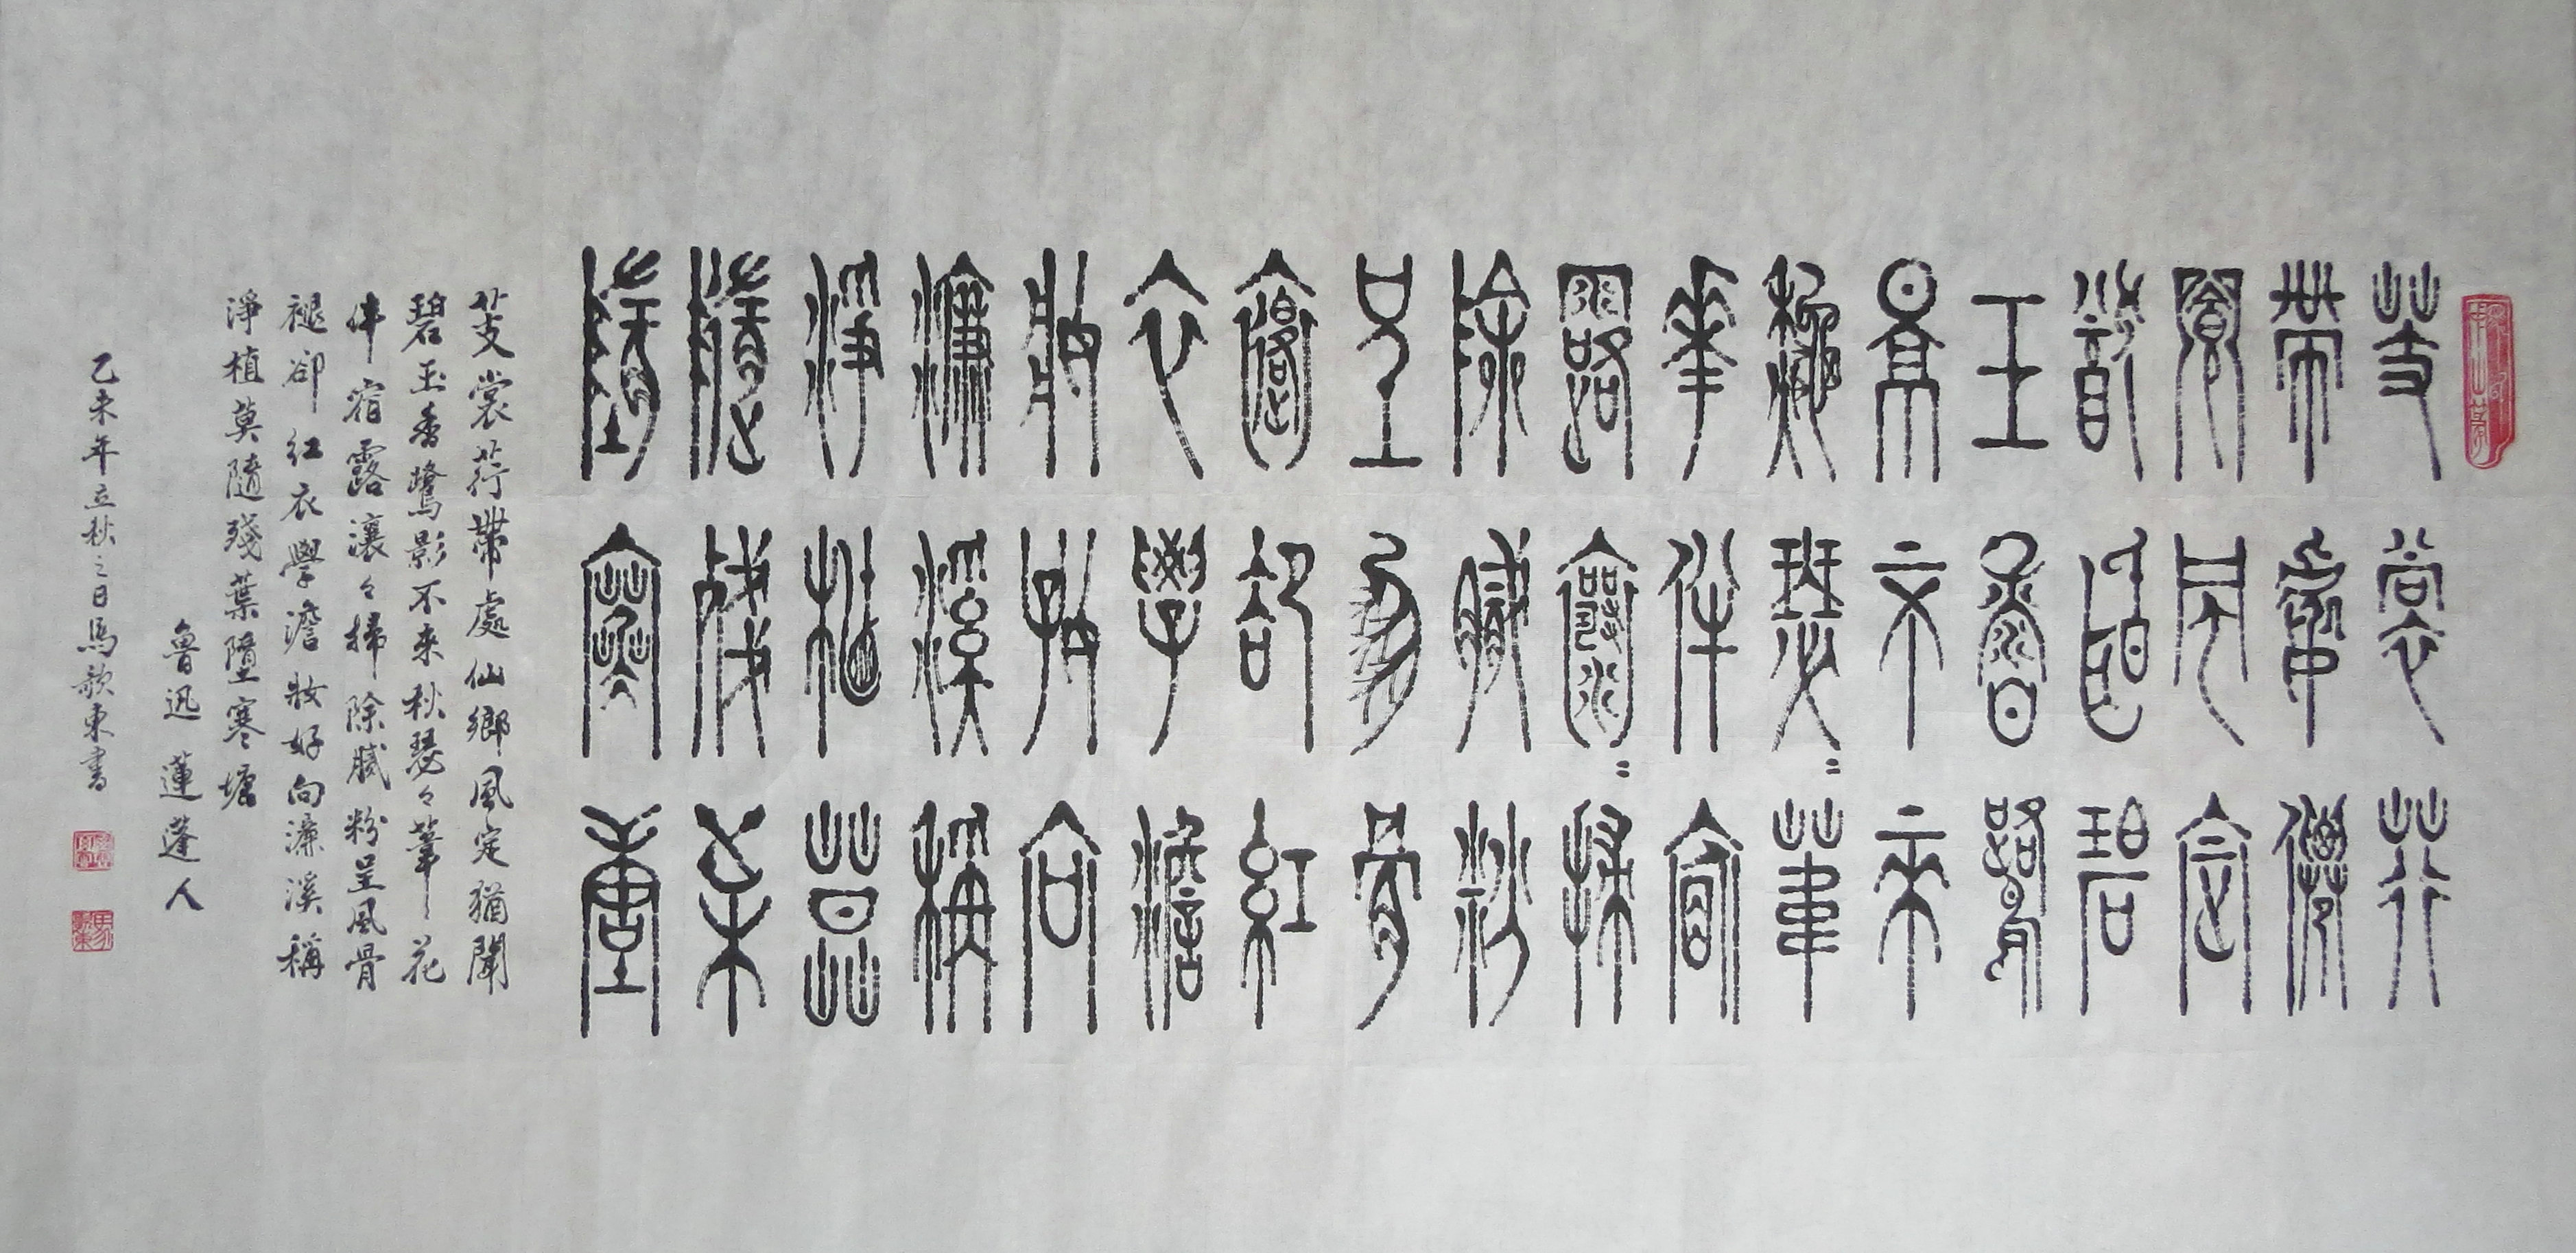 芰裳荇
帶處僊
鄉風定
猶聞碧
玉香鷺
影不來
秋瑟〻葦
華伴宿
露瀼〻掃
除膩粉
呈風骨
褪卻紅
衣學澹
妝好向
濂溪稱
淨植莫
隨殘葉
墮寒塘
芰裳荇帶處仙鄉風定猶聞
碧玉香鷺影不來秋瑟々葦花
伴宿露瀼々掃除膩粉呈風骨
褪卻紅衣學澹妝好向濂溪稱
淨植莫隨殘葉墮寒塘
魯迅 蓮蓬人
乙未年立秋之日馬歌東書